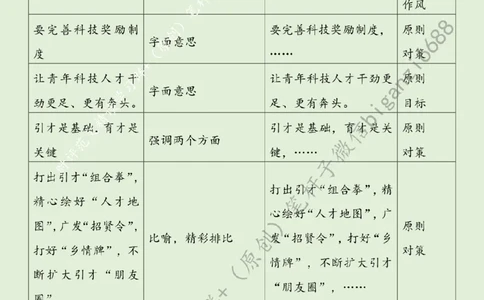 作风
要完善科技奖励制
度
字面意思
要完善科技奖励制度，
……
原则
对策
让青年科技人才干
劲更足、更有奔头。
字面意思
让青年科技人才干劲更
足、更有奔头。
原则
目标
引才是基础．育才是
关键
强调两个方面
引才是基础，育才是关
键，……
原则
对策
打出引才“组合拳”，
精心绘好“人才地
图”，广发“招贤令”，
打好“乡情牌”，不
断扩大引才“朋友
圈”
比喻，精彩排比
打出引才“组合拳”，精
心绘好“人才地图”，广
发“招贤令”，打好“乡
情牌”，不断扩大引才
“朋友圈”，……
原则
对策
（原创）笔杆子微信bigangzi6688